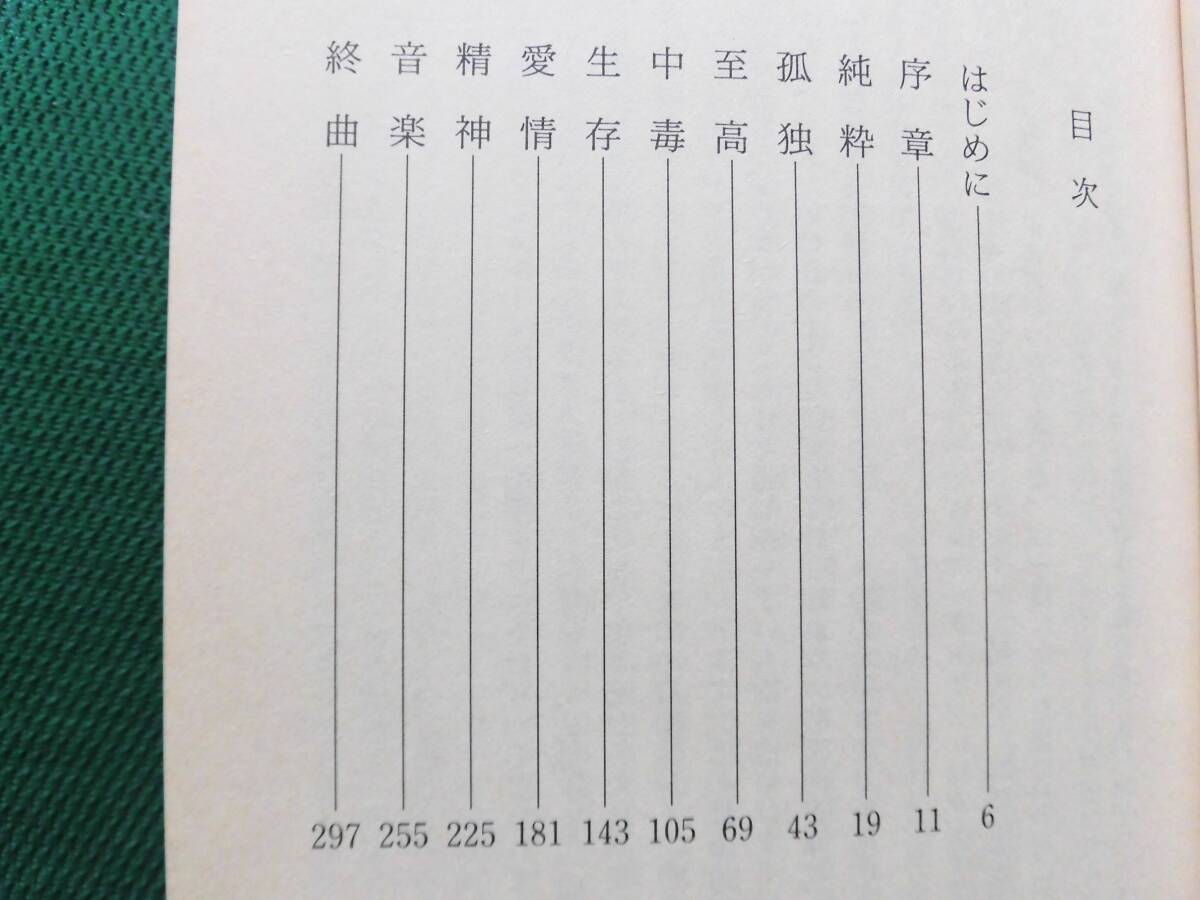 目次
はじめに 6
序章 11
純粋 19
孤独 43
至高 69
中毒 105
生存 143
愛情 181
精神 225
音楽 255
終曲 297